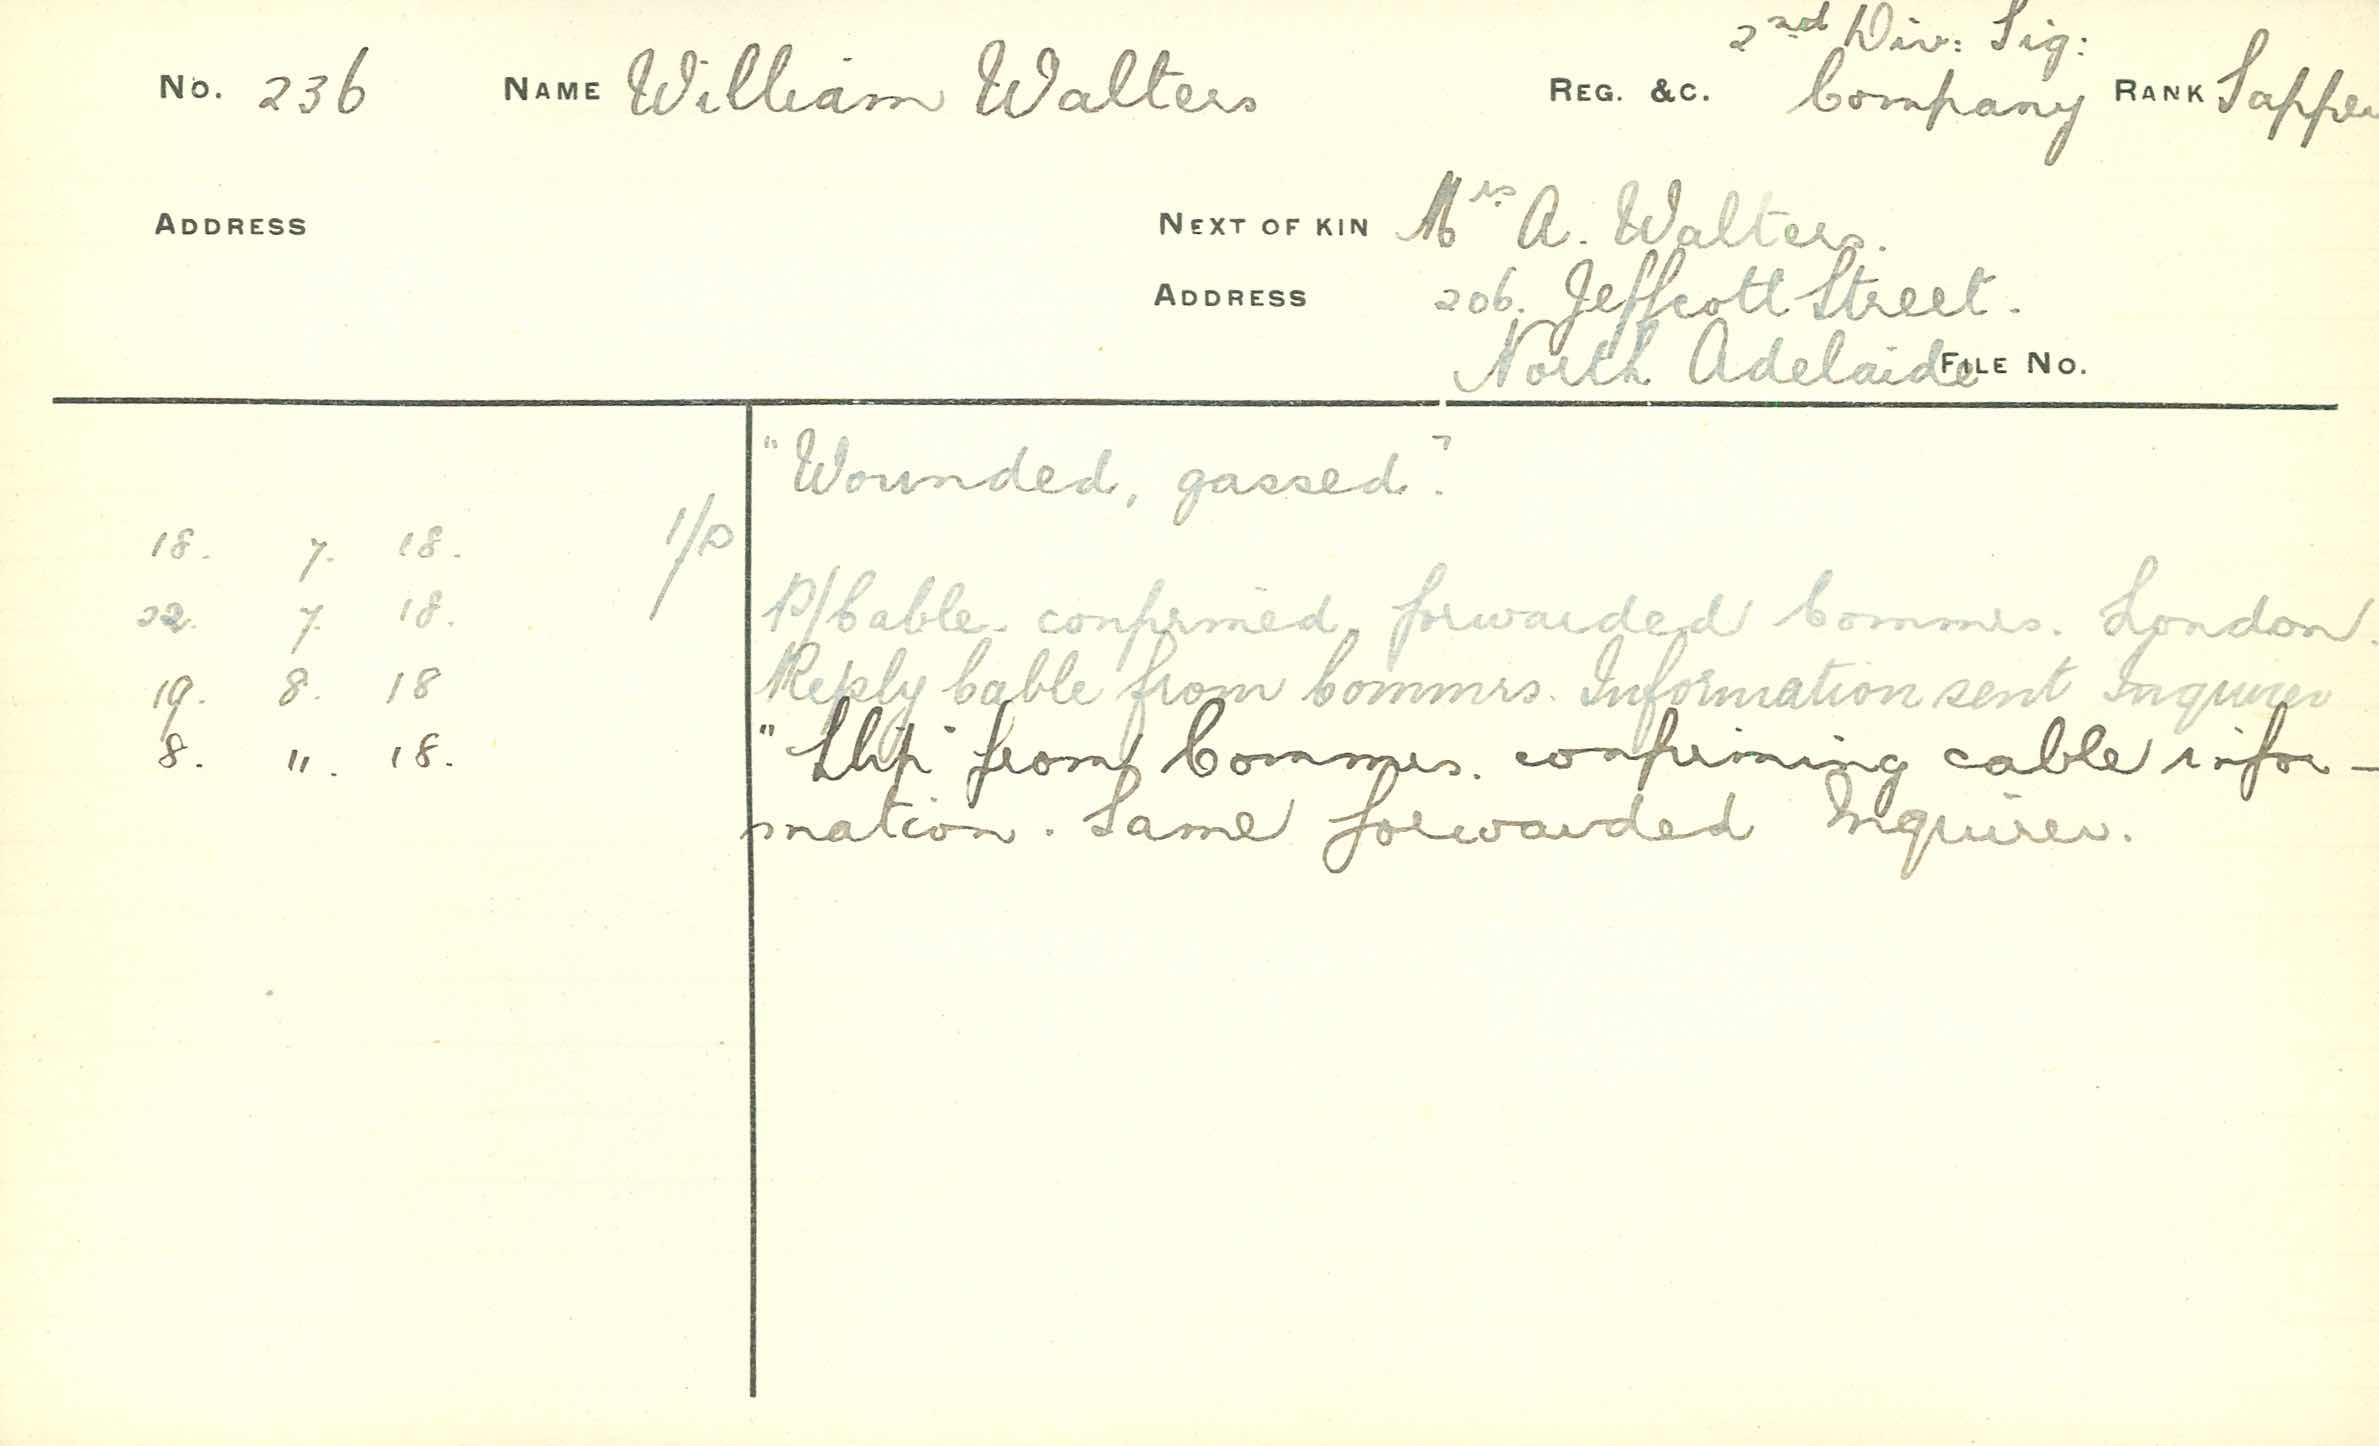 2nd Div: Sig:
No. 236 NAME William Walters REG. &C. Company RANK Sapper
ADDRESS NEXT OF KIN Mrs A. Walters.
ADDRESS 206. Jeffcott Street.
North Adelaide FILE No.
"Wounded, gassed".
18. 7. 18. 1/P
22. 7. 18. P/Cable. confirmed. forwarded Commrs. London.
19. 8. 18 Reply Cable from Commrs. Information sent Inquirer
8. 11. 18. "Slip" from Commrs. confirming cable infor-
mation. Same forwarded Inquirer.